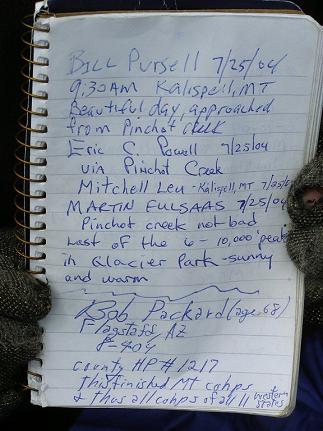 BILL Pursell 7/25/04
9:30AM Kalispell, MT
Beautiful day, approached
from Pinchot creek
Eric C. Powell 7/25/04
via Pinchot Creek
Mitchell Leu - Kalispell, MT 7/25/04
MARTIN FULSAAS 7/25/04
Pinchot creek not bad
Last of the 6 - 10,000' peaks
in Glacier Park - sunny
and warm
Bob Packard (age 68)
Flagstaff, AZ
county HP # 1217
this finished MT cohps
& thus all cohps of all 11 western
states